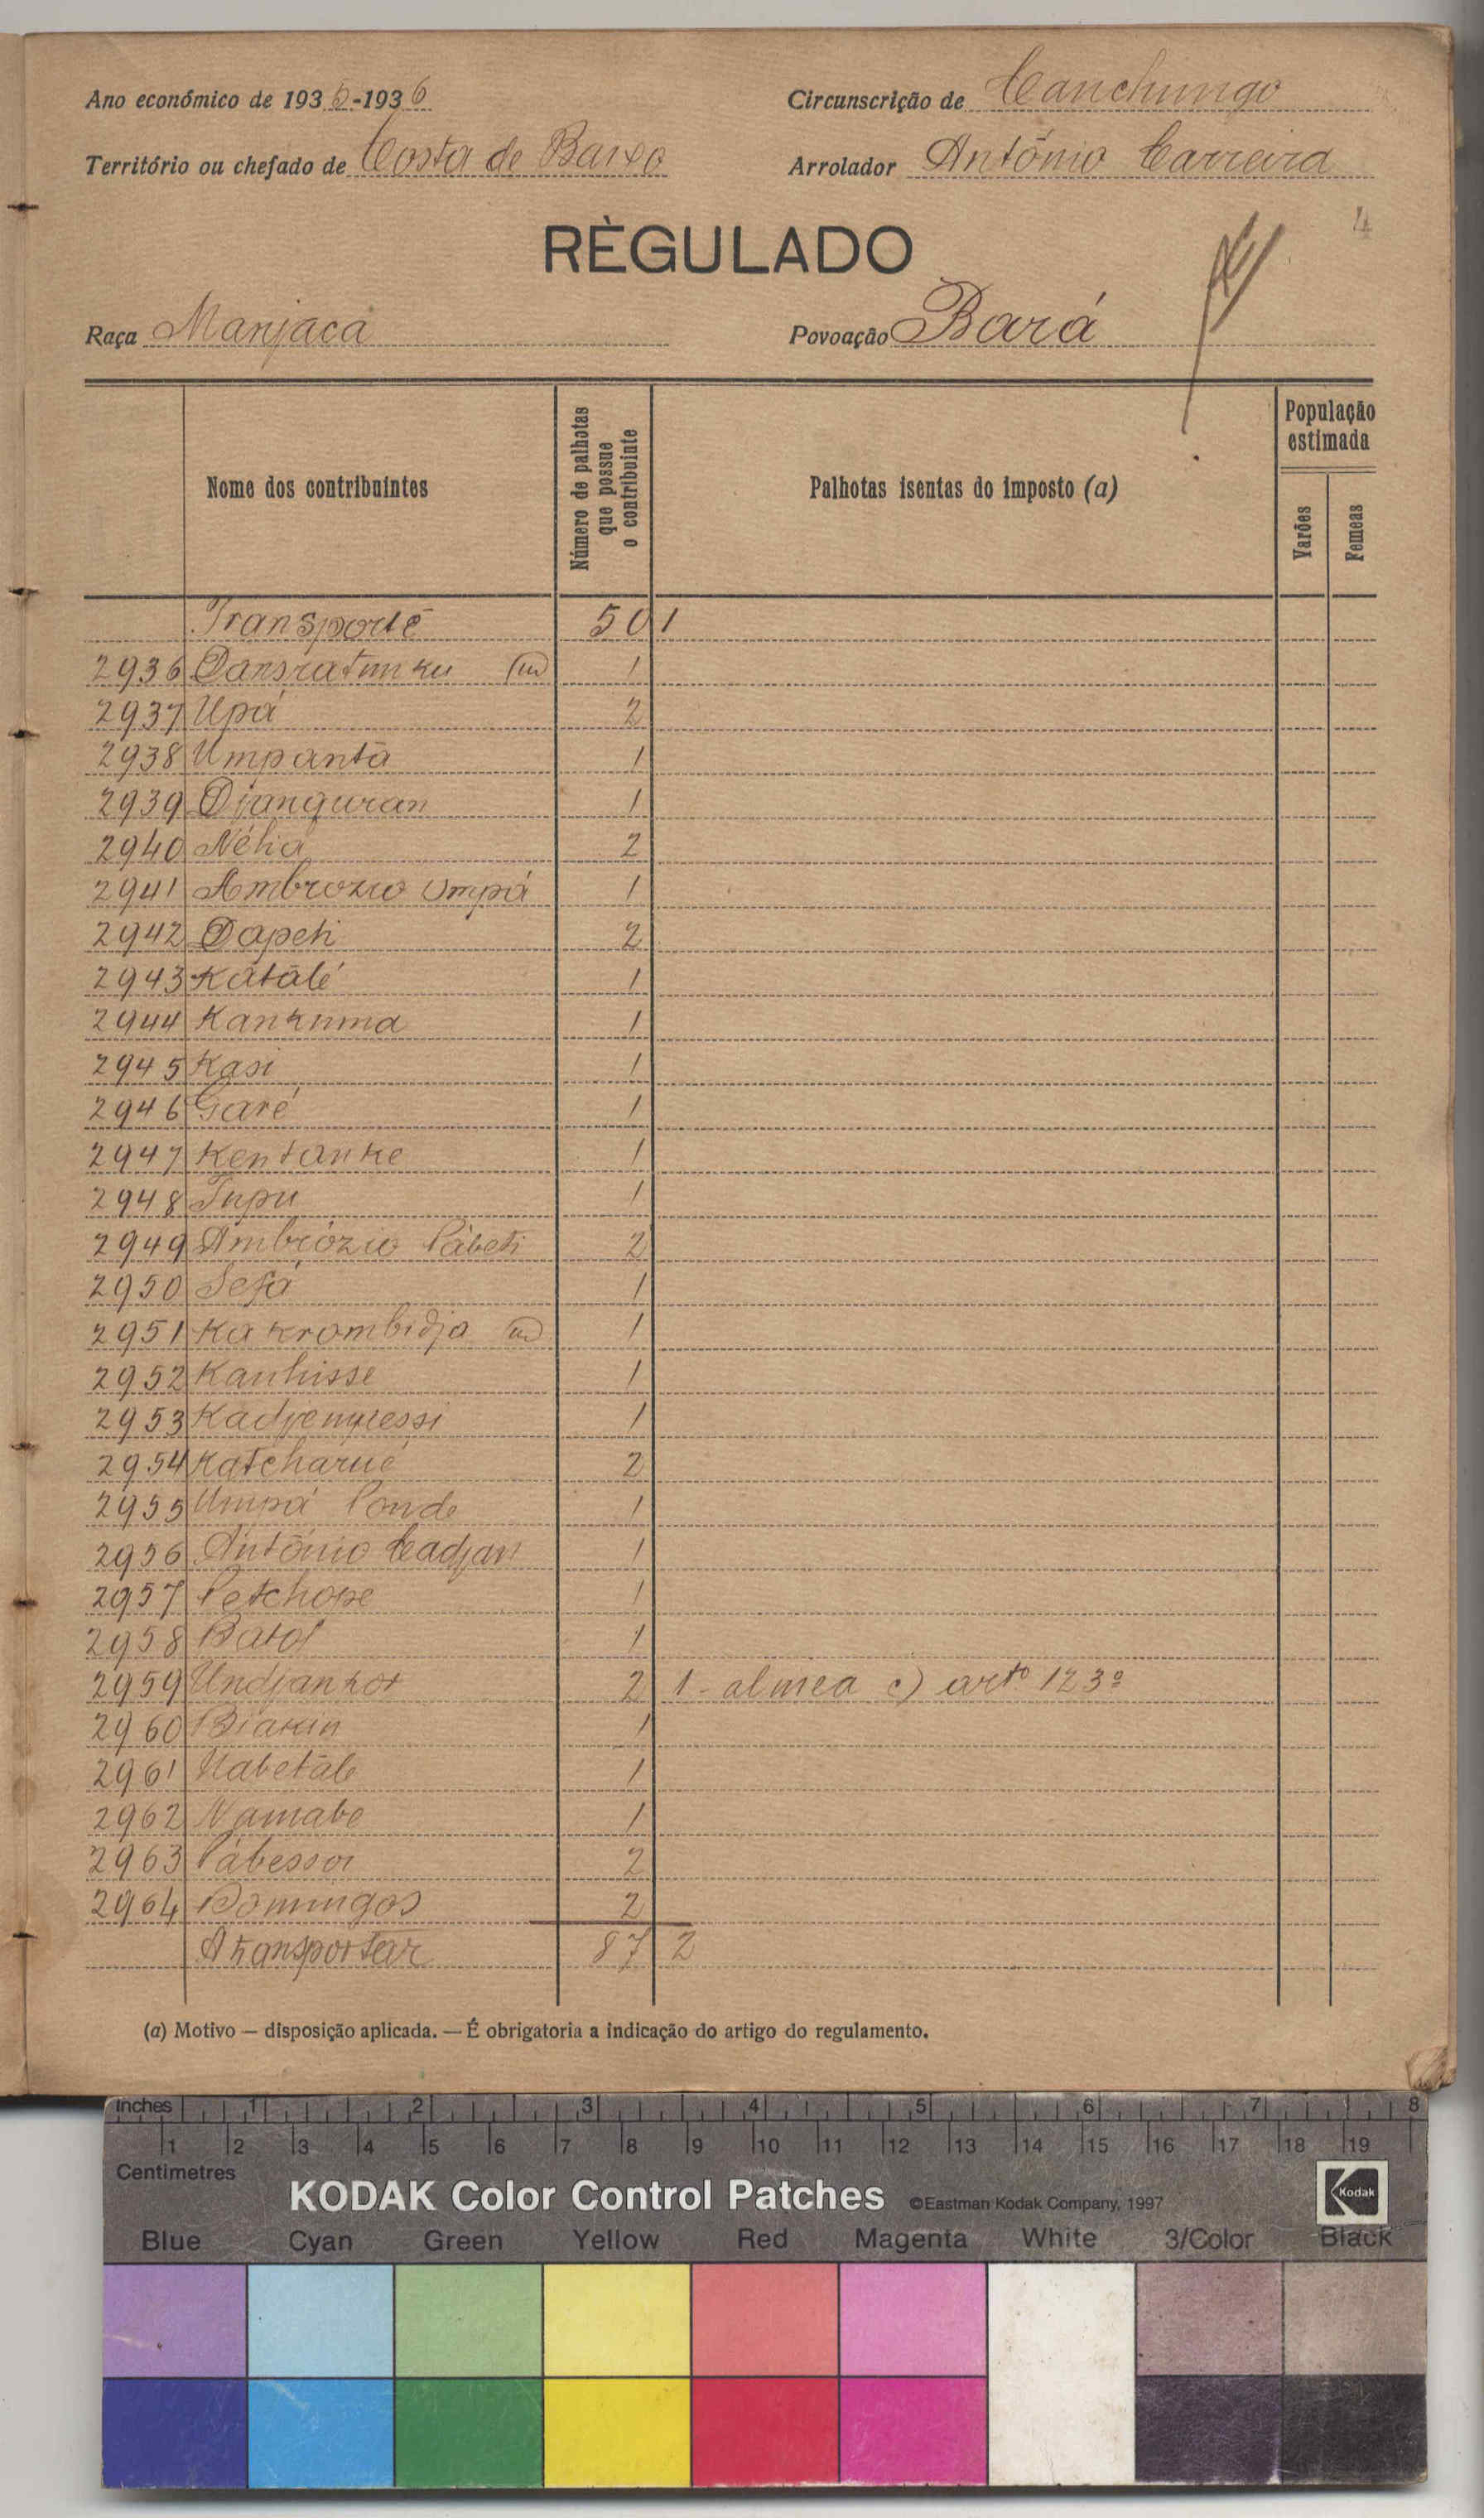 Ano económico de 1935-1936 Circunscrição de Canchungo
Território ou chefado de Costa de Baixo Arrolador António Carreira
4
RÈGULADO
Raça Manjaca Povoação Bará
Nome dos contribuintes
Número de palhotas que possue o contribuinte
Palhotas isentas do imposto (a)
População estimada
Varões
Femeas
Transporte 50 1
2936 1
2937 Upá 2
2938 Umpantā 1
2939 Djanguran 1
2940 Nélia 2
2941 Ambrozio Umpá 1
2942 Dapeti 2
2943 Katalé 1
2944 Kankuma 1
2945 Kasi 1
2946 Garé 1
2947 Kentanke 1
2948 Tupu 1
2949 Ambrózio Pábeti 2
2950 Sefá 1
2951 Kakrombidja 1
2952 Kanhisse 1
2953 1
2954 Katcharué 2
2955 Umpá Ponde 1
2956 António Cadjan 1
2957 Petchope 1
2958 1
2959 Undjankot 2 1 - c) artº 123º
2960 Biakin 1
2961 1
2962 Namabe 1
2963 2
2964 Domingos 2
A transportar 87 2
(a) Motivo — disposição aplicada. — É obrigatoria a indicação do artigo do regulamento.
Inches 1 2 3 4 5 6 7 8
1 2 3 4 5 6 7 8 9 10 11 12 13 14 15 16 17 18 19
Centimetres
KODAK Color Control Patches ©Eastman Kodak Company, 1997 Kodak
Blue Cyan Green Yellow Red Magenta White 3/Color Black